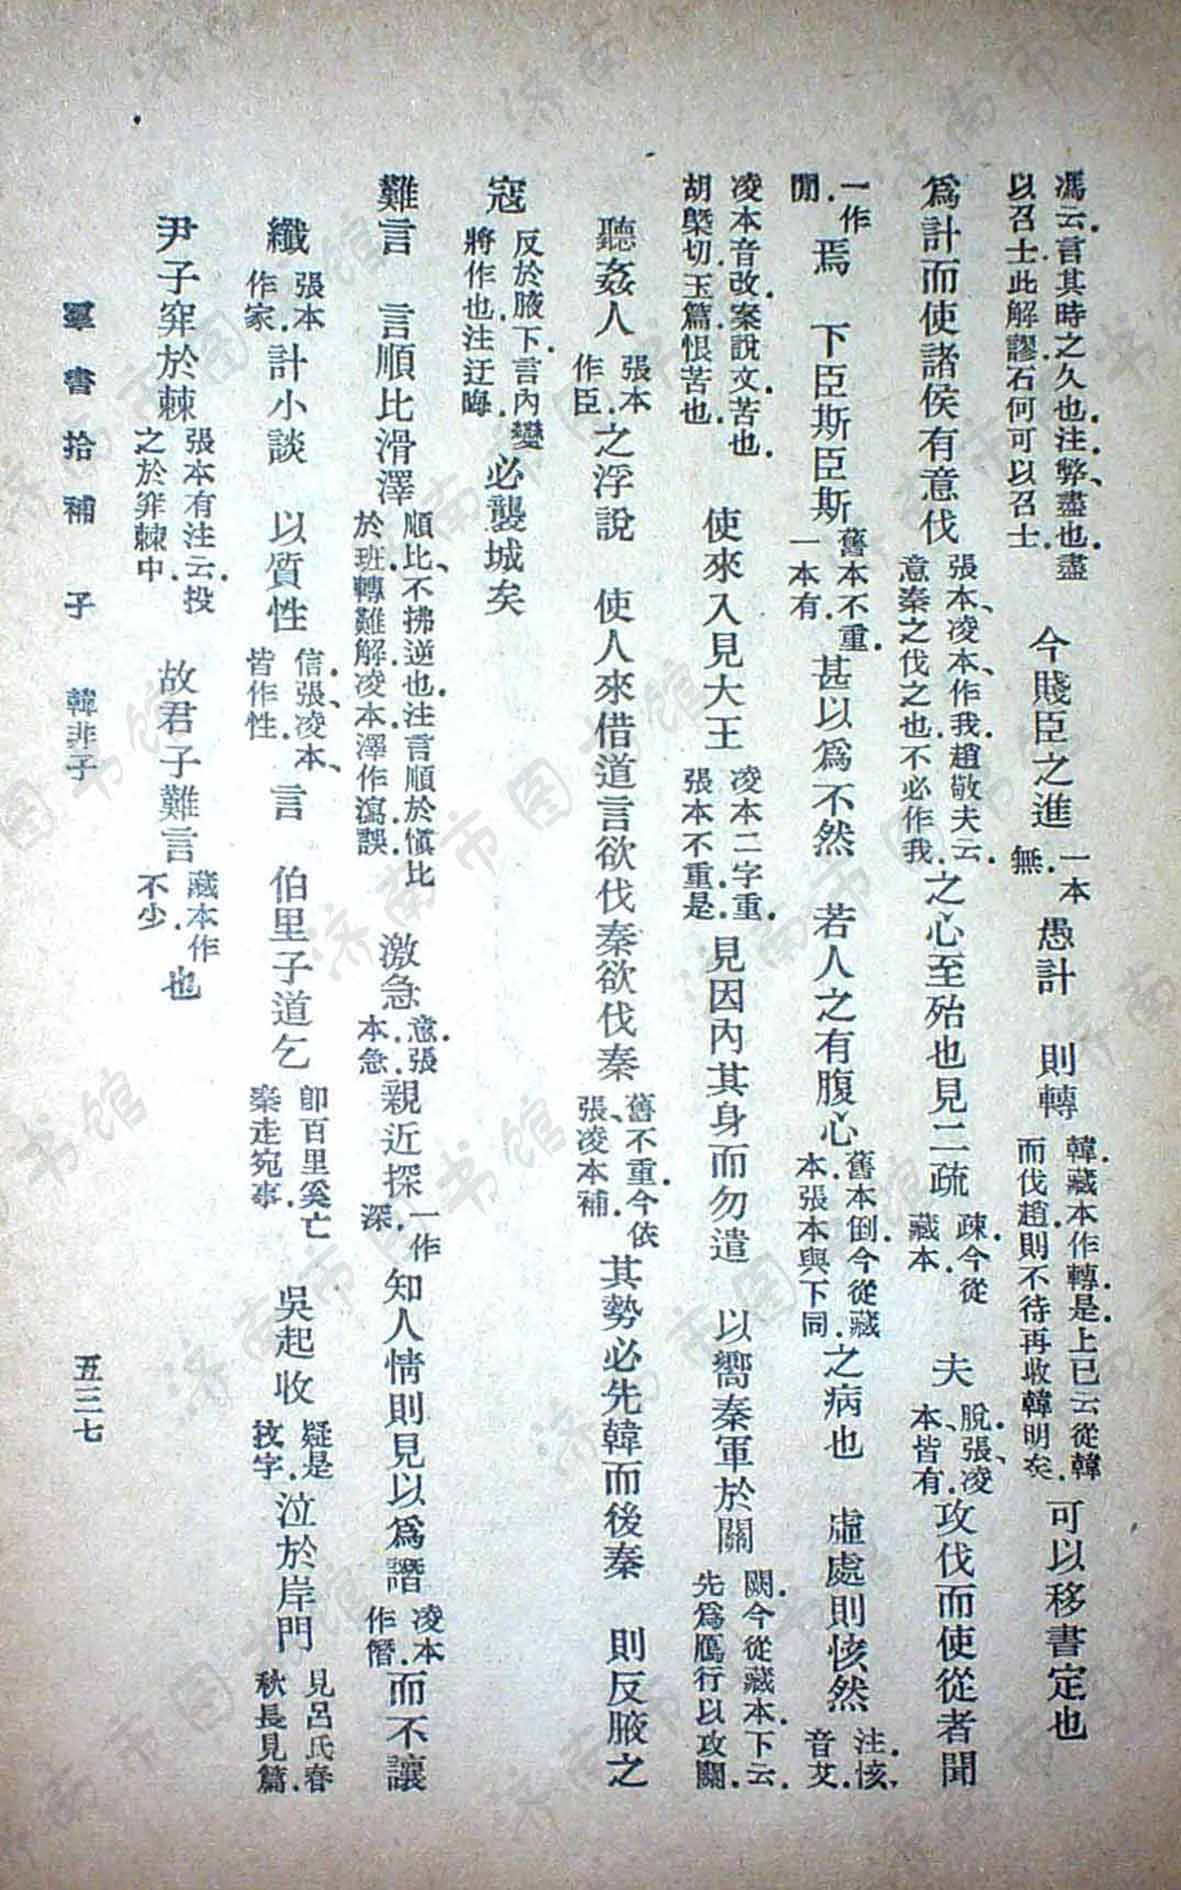 馮云.言其時之久也.注.弊.盡也.盡以召士.此解謬.石何可以召士.　今賤臣之進一本無.愚計　則轉韓.藏本作轉.是.上已云從韓而伐趙.則不待再收韓明矣.可以移書定也
爲計而使諸侯有意伐張本、凌本、作我.趙敬夫云.意秦之伐之也.不必作我.之心至殆也見二疏疎.今從藏本.　夫脫.張、凌本、皆有.攻伐而使從者聞
一作閒.焉　下臣斯臣斯舊本不重.一本有.甚以爲不然　若人之有腹心舊本倒.今從藏本.張本與下同.之病也　虛處則㤥然注.㤥、音艾.
凌本音改.案說文.苦也.胡槩切.玉篇.恨苦也.　使來入見大王凌本二字重.張本不重.是.見因內其身而勿遣　以嚮秦軍於關闕.今從藏本.下云.先爲鴈行以攻關.
聽姦人張本作臣.之浮說　使人來借道言欲伐秦欲伐秦舊不重.今依張、凌本補.其勢必先韓而後秦　則反腋之
寇反於腋下.言內變將作也.注迂晦.必襲城矣
難言　言順比滑澤順比、不拂逆也.注言順於愼比於班.轉難解.凌本.澤作瀉.誤.　激急意.張本.急.親近探一作深.知人情則見以爲譖凌本作僭.而不讓
纖張本作家.計小談　以質性信.張、凌本、皆作性.言　伯里子道乞卽百里奚亡秦走宛事.　吳起收疑是抆字.泣於岸門見呂氏春秋長見篇.
尹子穽於棘張本有注云.投之於穽棘中.　故君子難言藏本作不少.也
羣書拾補　子　韓非子　五三七